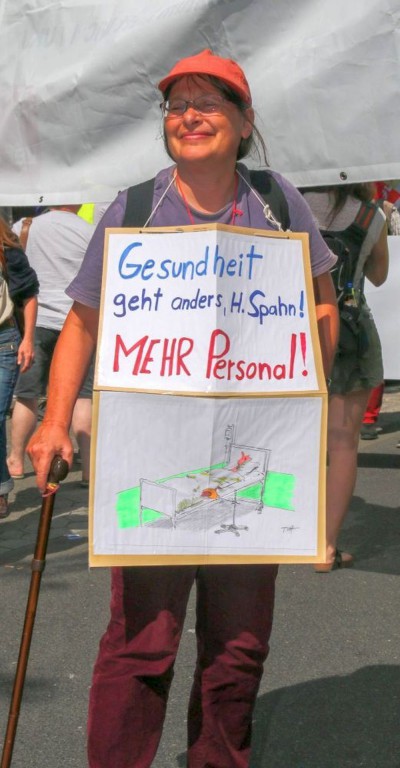 Gesundheit
geht anders, H. Spahn!
MEHR Personal!